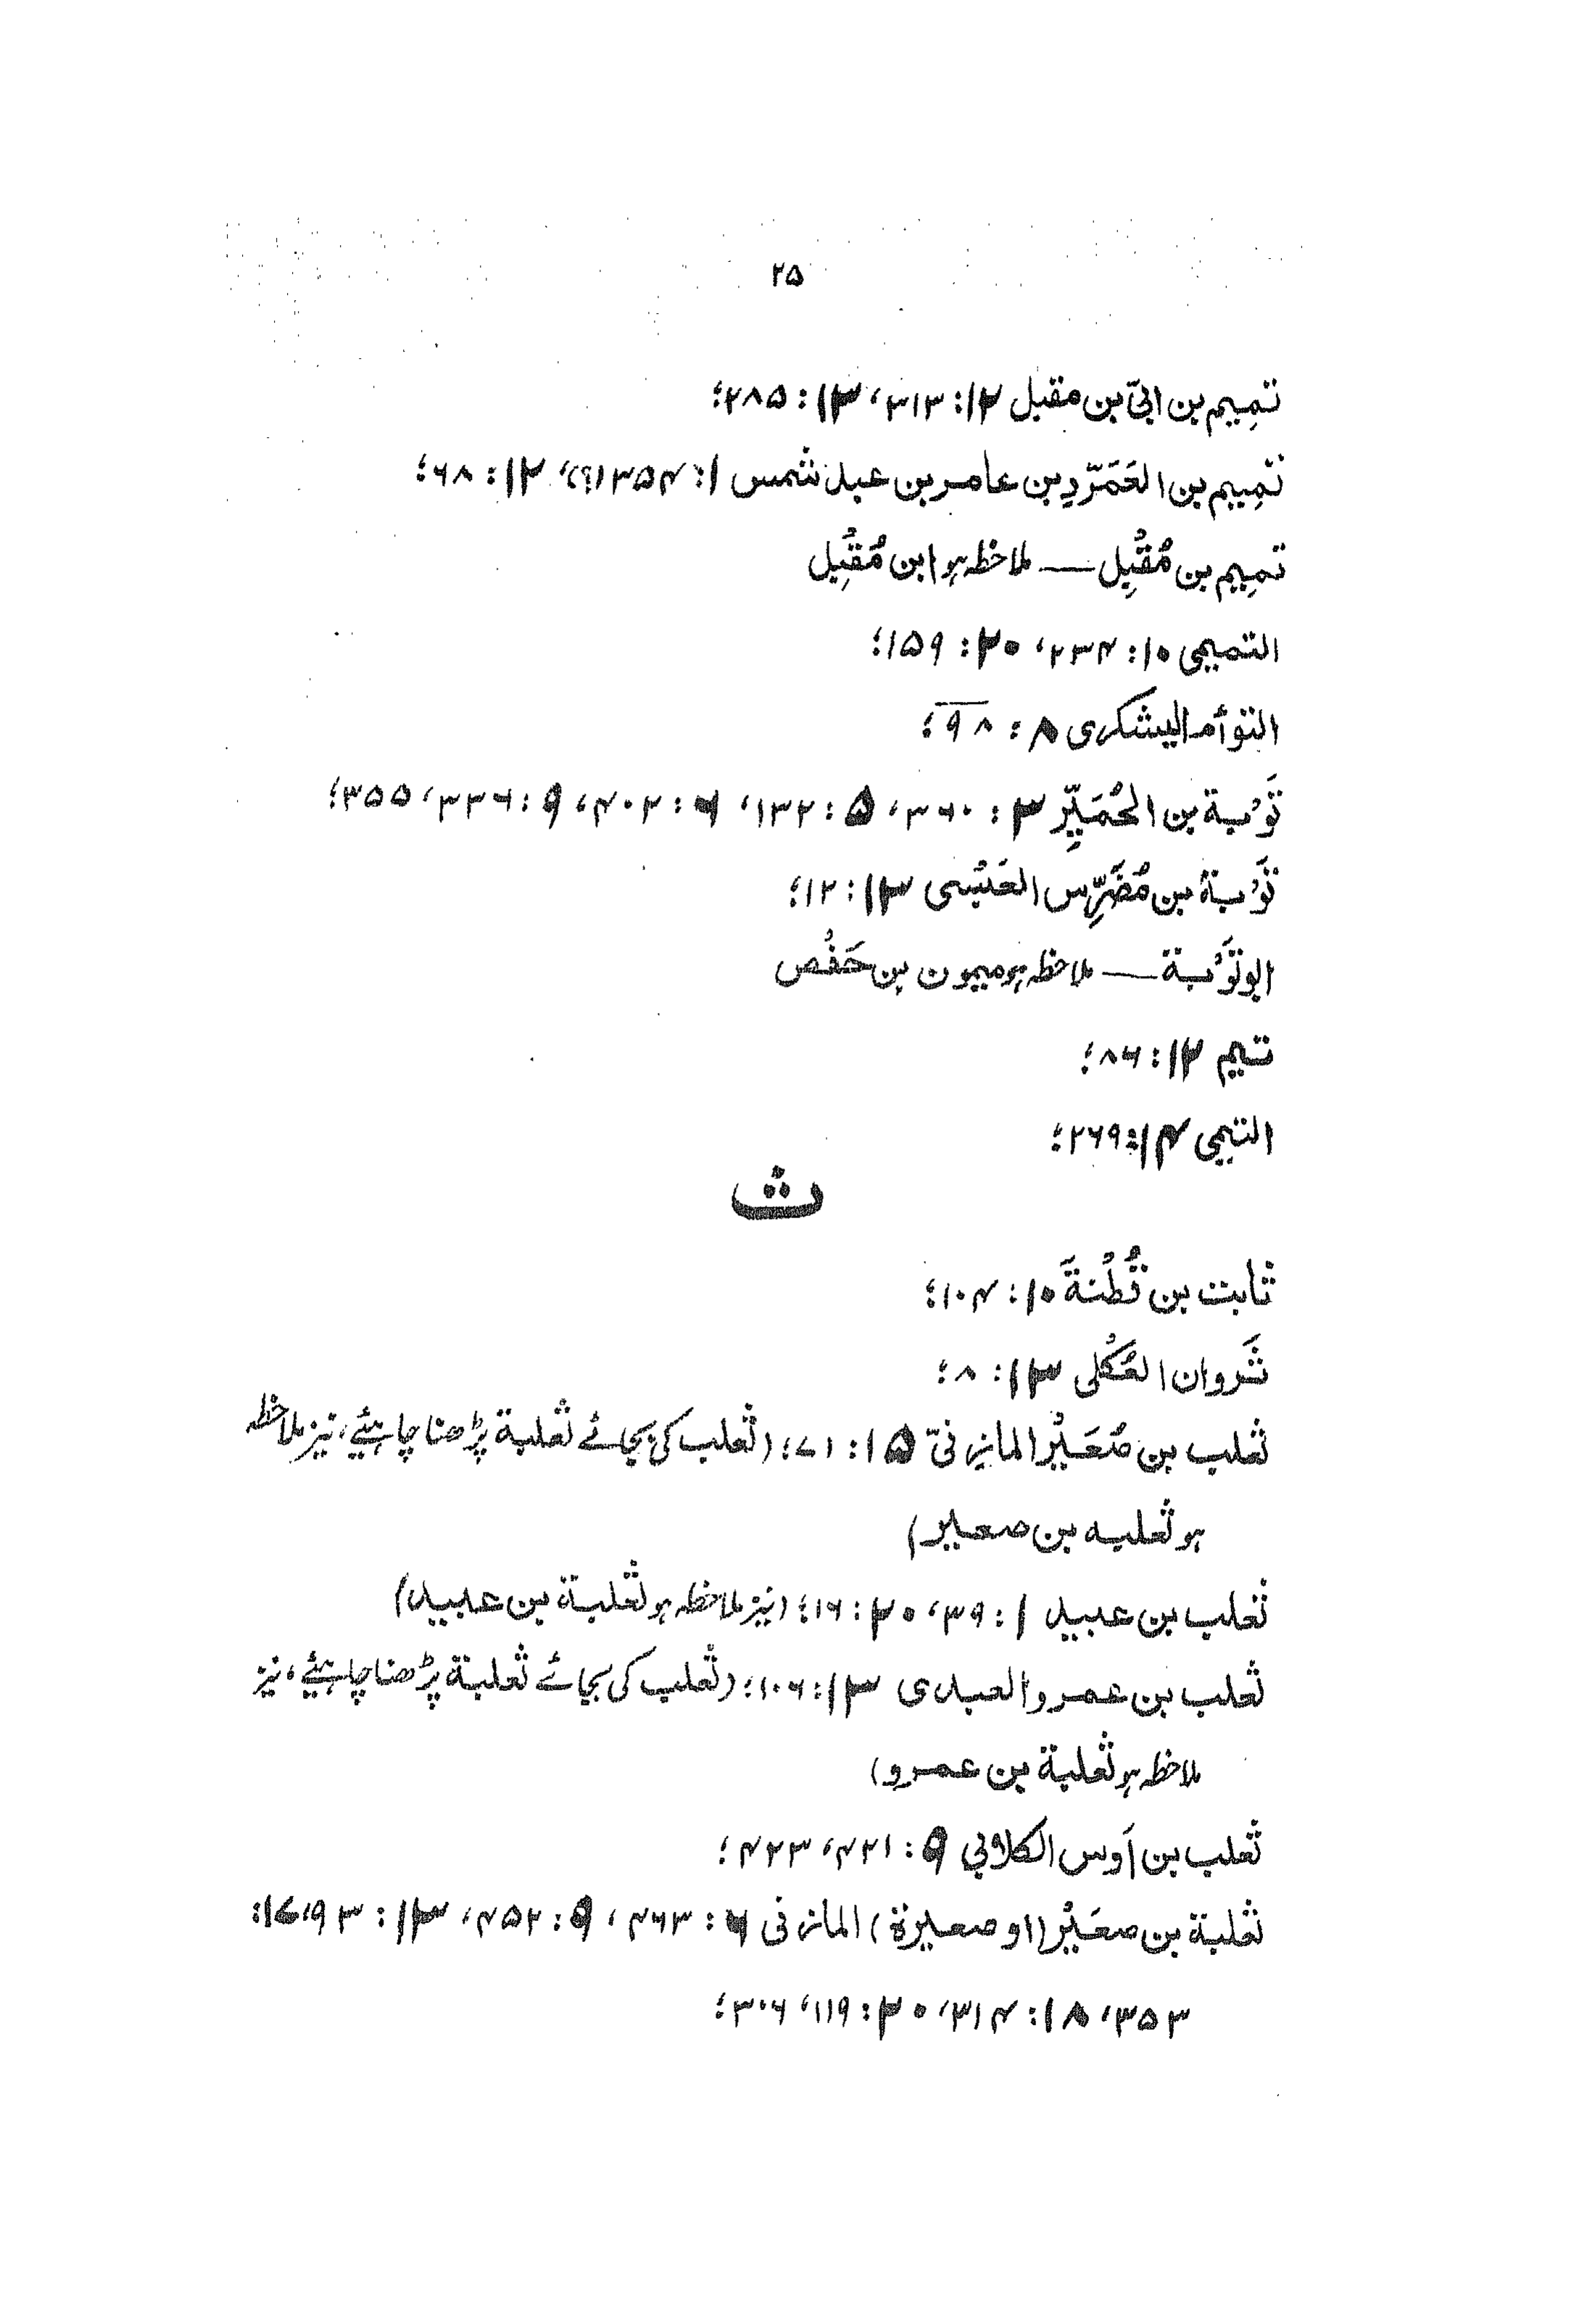 ۲۵
تمِیم بن ابیّ بن مقبل ۱۲: ۳۱۳، ۱۳: ۲۸۵؛
تمِیم بن العَمَرّدِ بن عامر بن عبد شمس ۱: ۱۳۵۴(؟)، ۱۲: ۶۸؛
تمِیم بن مُقْبِل — ملاحظہ ہو ابن مُقْبِل
التمیمی ۱۰: ۲۳۴، ۲۰: ۱۵۹؛
التوأم الیشکری ۸: ۹۸؛
تَوْبة بن الحُمَیِّر ۳: ۳۶۰، ۵: ۱۳۲، ۶: ۴۰۲، ۹: ۳۳۶، ۳۵۵؛
تَوْبة بن مُضَرِّس العَبْسی ۱۳: ۱۲؛
ابو تَوْبة — ملاحظہ ہو میمون بن حَفْص
تیم ۱۲: ۸۶؛
التیمی ۱۴: ۲۶۹؛
ث
ثابت بن قُطْنةَ ۱۰: ۱۰۴؛
ثَروان العُکْلی ۱۳: ۸؛
ثعلب بن صُعَیْر المازِنیّ ۱۵: ۷۱؛ (ثعلب کی بجائے ثعلبة پڑھنا چاہئیے، نیز ملاحظہ
ہو ثعلبہ بن صعیر)
ثعلب بن عبید ۱: ۳۹، ۲۰: ۱۶؛ (نیز ملاحظہ ہو ثعلبة بن عبید)
ثعلب بن عمرو العبدی ۱۳: ۱۰۶؛ (ثعلب کی بجائے ثعلبة پڑھنا چاہئیے، نیز
ملاحظہ ہو ثعلبة بن عمرو)
ثعلب بن اَوس الکلابی ۹: ۴۲۱، ۴۲۳؛
ثعلبة بن صعَیْر (او صعیرة) المازنی ۶: ۴۶۳، ۹: ۴۵۲، ۱۳: ۹۳، ۱۷:
۳۵۳، ۱۸: ۳۱۴، ۲۰: ۱۱۹، ۳۰۶؛